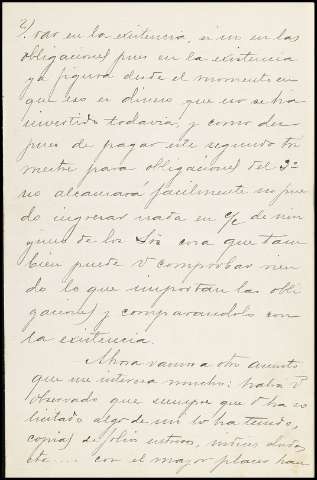 2)
var en la existencia, si no en las
obligaciones pues en la existencia
ya figura desde el momento en
que eso es dinero que no se ha
invertido todavia; y como des
pues de pagar este segundo tri
mestre para obligaciones del 3º
no alcanzará facilmente no pue
do ingresar nada en c/c de nin
guno de los Sõs cosa que tam
bien puede V comprobar vien
do lo que importan las obli
gaciones y comparandolo con
la existencia.
Ahora vamos a otro asunto
que me interesa mucho: habrá V.
observado que siempre que V. ha so
licitado algo de mi lo ha tenido,
copias de fólios enteros,
etc.... con el mayor placer han